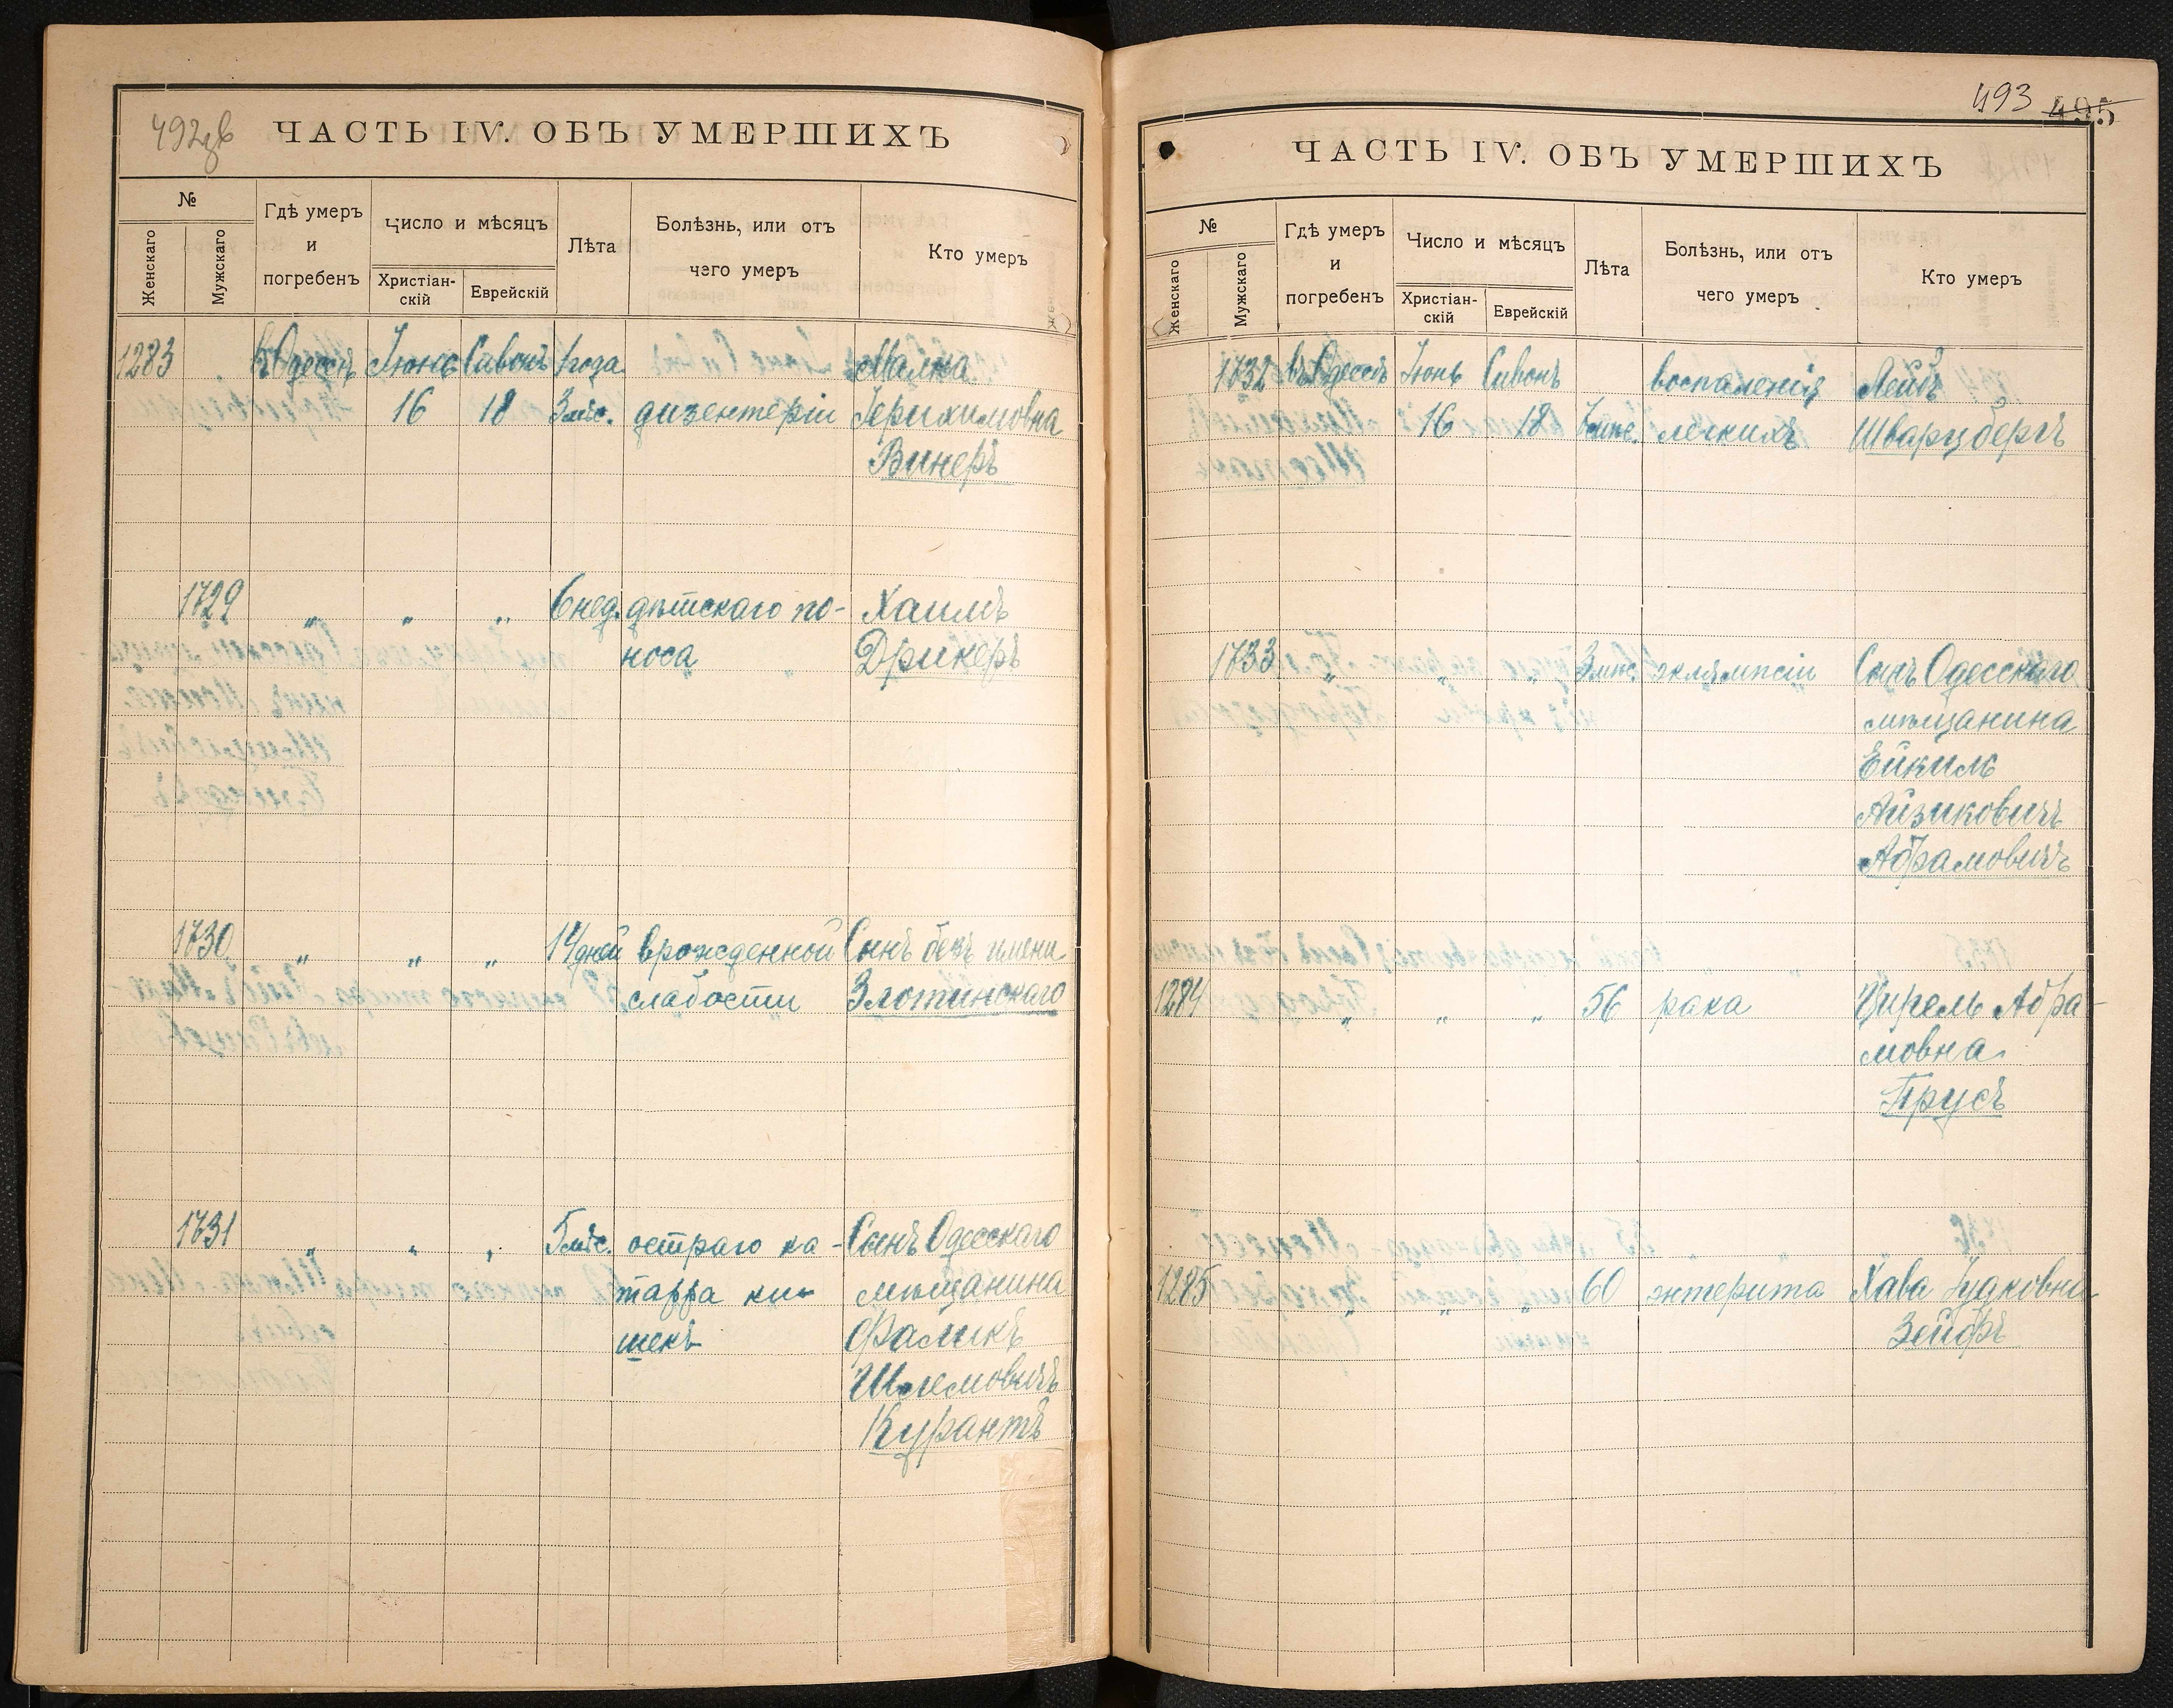 492 об
ЧАСТЬ IV. ОБЪ УМЕРШИХЪ
№
Женскаго
Мужскаго
Гдѣ умеръ
и
погребенъ
Число и мѣсяцъ
Христіан-
скій
Еврейскій
Лѣта
Болѣзнь, или отъ
чего умеръ
Кто умеръ
1283 въ Одессѣ Іюнь Сивонъ 1 года Малка
16 18 3 мѣс. дизентеріи Герихимовна
Винеръ
1729 " " " 6 нед. дѣтскаго по- Хаимъ
носа Дрикеръ
1730 " " " 14 дней врожденной Сынъ безъ имени
слабости Злотинскаго
1731 " " " 5 мѣс. остраго ка- Сынъ Одесскаго
тарра ки- мѣщанина
шекъ Фаликъ
Шлемовичъ
Курантъ
493 495
ЧАСТЬ IV. ОБЪ УМЕРШИХЪ
№
Женскаго
Мужскаго
Гдѣ умеръ
и
погребенъ
Число и мѣсяцъ
Христіан-
скій
Еврейскій
Лѣта
Болѣзнь, или отъ
чего умеръ
Кто умеръ
1732 въ Одессѣ Іюнь Сивонъ воспаленія Лейбъ
16 18 мѣс. легкихъ Шварцбергъ
1733 " " " 3 мѣс. эклямпсіи Сынъ Одесскаго
мѣщанина
Ейкиль
Айзиковичъ
Абрамовичъ
1284 " " " 56 рака Цирель Абра-
мовна
Прусъ
1285 " " " 60 энтерита Хава Іцковна
Зейфъ